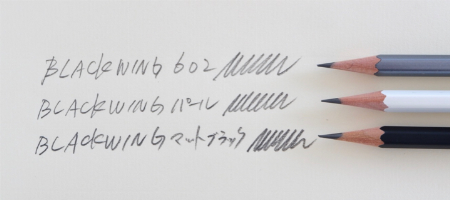 BLACKWING 602
BLACKWING パール
BLACKWING マットブラック